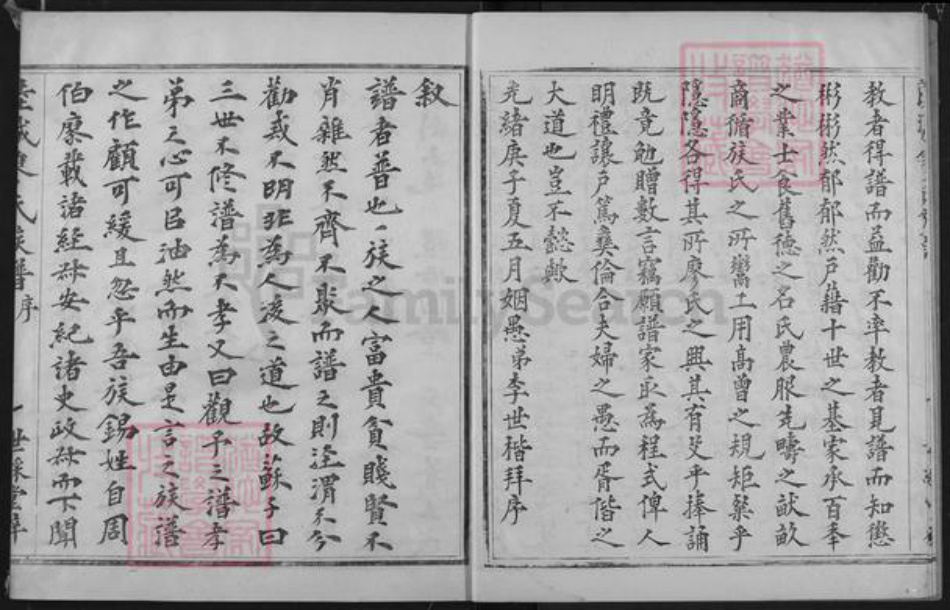 教者得譜而益勸不率教者見譜而知懲
彬彬然郁郁然戶藉十世之基家承百年
之業士食舊德之名氏農服先疇之畎畝
商循族氏之所鬻工用高曾之規矩粲乎
隱隱各得其所廖氏之興其有艾乎捧誦
既竟勉贈數言竊願譜家永為程式俾人
明禮讓戶篤彝倫合夫婦之愚而胥偕之
大道也豈不懿歟
光緒庚子夏五月姻愚弟李世楷拜序
敘
譜者普也一族之人富貴貧賤賢不
肖雜然不齊不聚而譜之則涇渭不分
勸戒不明非為人後之道也故蘇子曰
三世不修譜為不孝又曰觀予之譜孝
弟之心可㠯油然而生由是言之族譜
之作顧可緩且忽乎吾族錫姓自周
伯廖載諸經叔安紀諸史政叔而下聞
氏族譜 序 一 世綵堂
FamilySearch